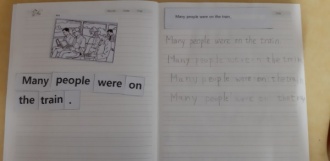 Many people were on
the train .
Many people were on the train.
Many people were on the train
Many people were on the train
Many people were on train
Many people were on